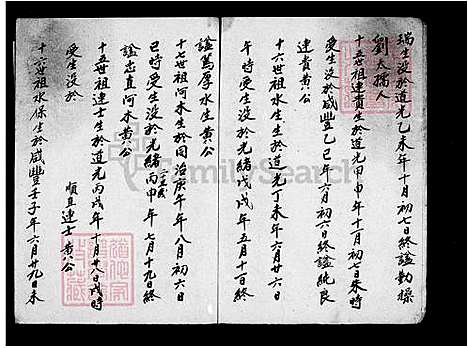 瑞生沒於道光乙未年十月初七日諡勤操
劉太孺人
十五世祖連貴生於道光甲申年十一月初七未時
受生沒於咸豐乙巳年六月初六日終諡純良
連貴黃公
十六世祖水生於道光丁未年六月廿六日
午時受生沒於光緒戊戌年五月十日終
諡篤厚水生黃公
十七世祖河木生於同治庚午年八月初六日
巳時受生沒於光緒丙申年七月十九日終
諡忠直河木黃公
十五世祖連士生於道光丙戌年十月十八日戌時
受生沒於
順直連士黃公
十六世祖水保生於咸豐壬子年六月廿九日未
FamilySearch